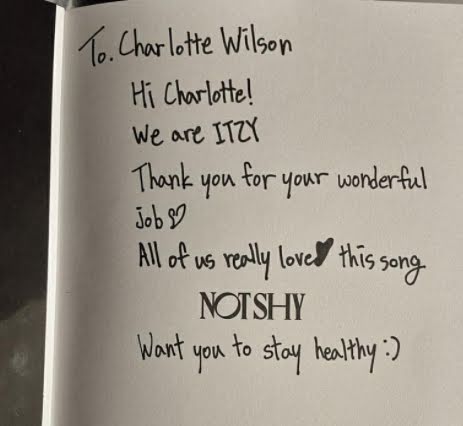 To. Charlotte Wilson
Hi Charlotte!
We are ITZY
Thank you for your wonderful
job♡
All of us really love♥ this song
NOT SHY
Want you to stay healthy :)